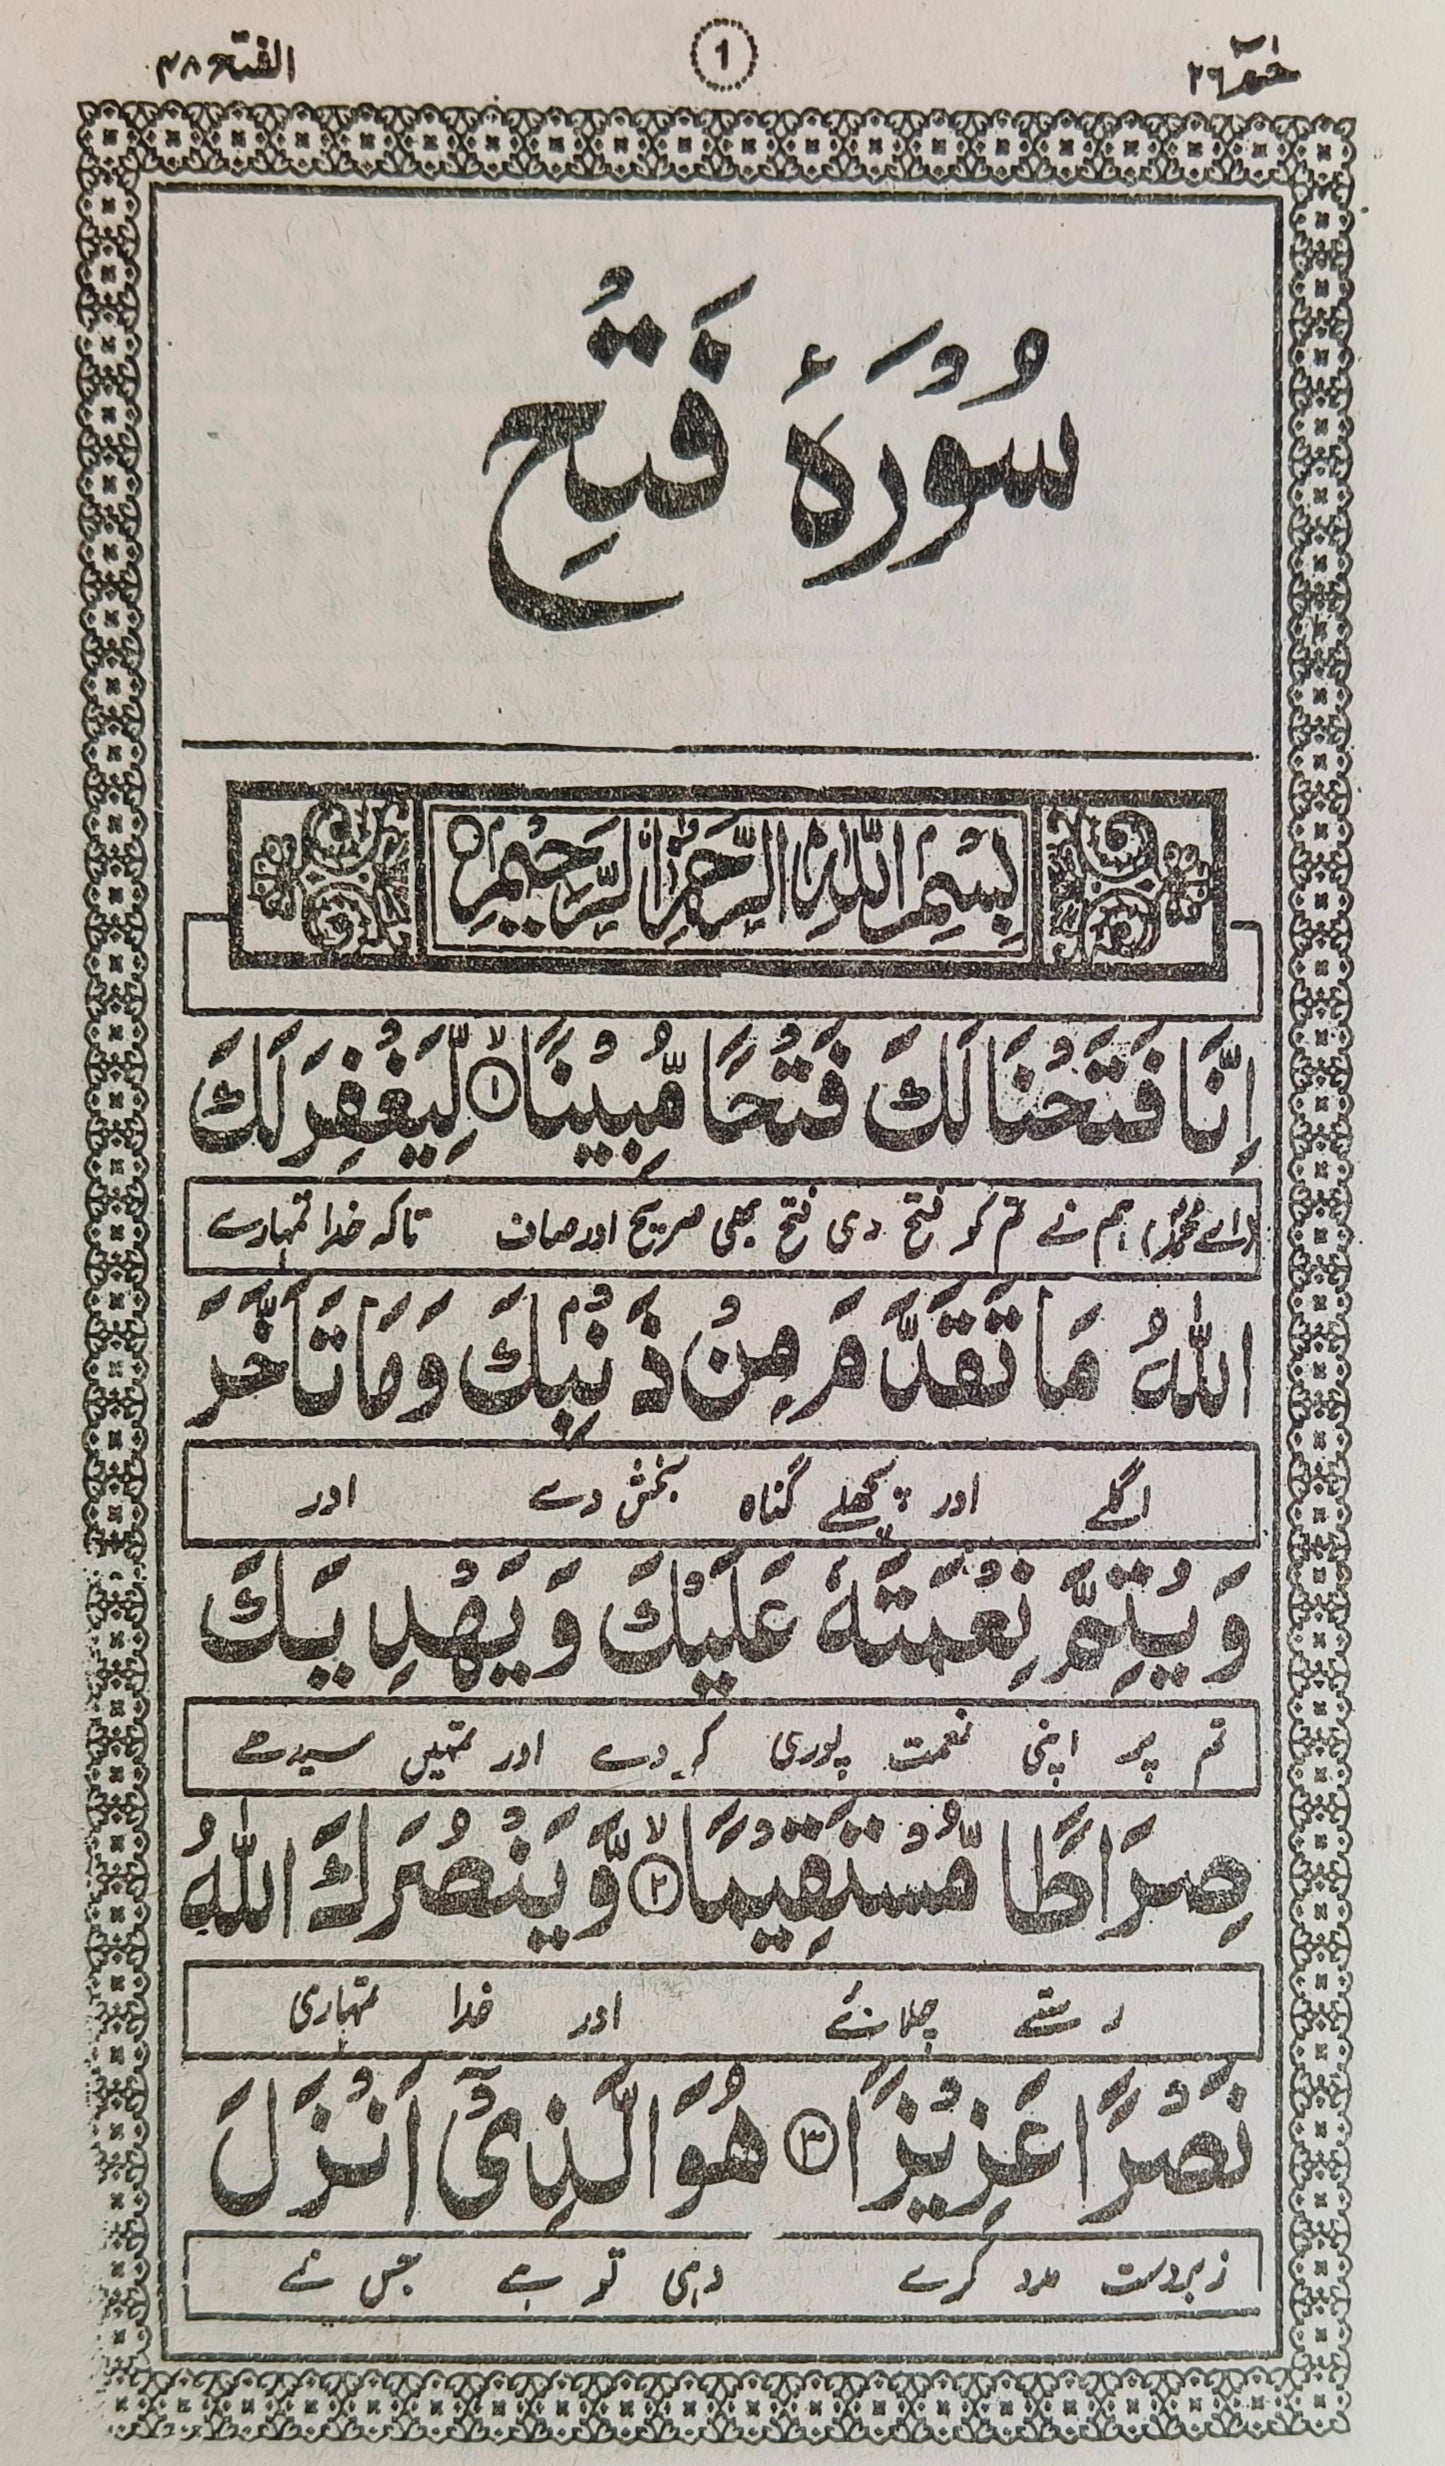 حٰمٓ ٢٦
1
الفتح ٤٨
سُوْرَۂ فَتْحِ
بِسْمِ اللّٰهِ الرَّحْمٰنِ الرَّحِيْمِ
اِنَّا فَتَحْنَا لَكَ فَتْحًا مُّبِيْنًا ۙ‏﴿۱﴾ لِّيَغْفِرَ لَكَ
(اے محمدؐ) ہم نے تم کو فتح دی فتح بھی صریح اور صاف تاکہ خدا تمہارے
اللّٰهُ مَا تَقَدَّمَ مِنْ ذَنْۢبِكَ وَمَا تَاَخَّرَ
اگلے اور پچھلے گناہ بخش دے اور
وَيُتِمَّ نِعْمَتَهٗ عَلَيْكَ وَيَهْدِيَكَ
تم پر اپنی نعمت پوری کر دے اور تمہیں سیدھے
صِرَاطًا مُّسْتَقِيْمًا ۙ‏﴿۲﴾ وَّيَنْصُرَكَ اللّٰهُ
رستے چلائے اور خدا تمہاری
نَصْرًا عَزِيْزًا ﴿۳﴾ هُوَ الَّذِىْۤ اَنْزَلَ
زبردست مدد کرے وہی تو ہے جس نے